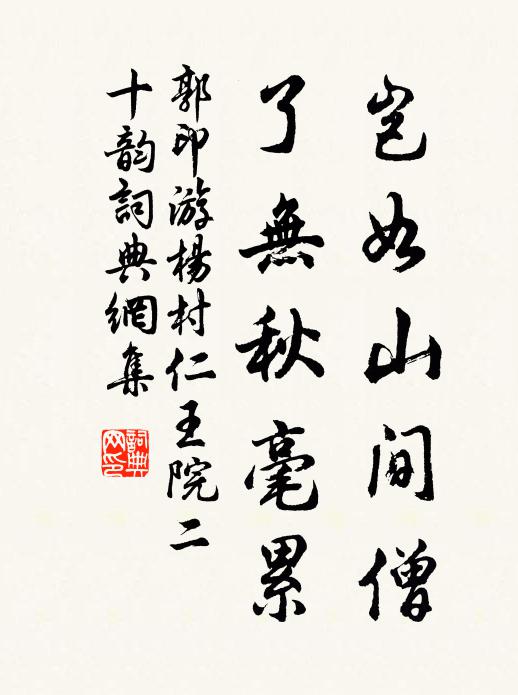 豈如山間僧
了無秋毫累
郭印游楊村仁王院二
十韵詞典網集
詞典
网印